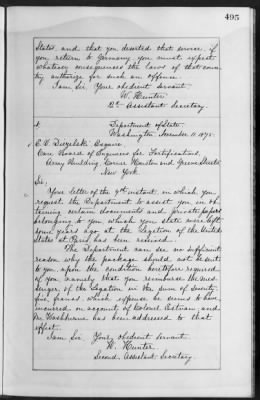 495
States, and that you deserted that service, if
you return to Germany, you must expect
whatever consequences the laws of that coun-
try authorize for such an offense.
I am Sir, Your obedient servant
W. Hunter
2d Assistant Secretary.
Department of State
Washington, 11, 1875.
Esquire,
Care Board of Engineers for Fortifications,
Army Building, Corner Houston and Greene Streets
New York.
Sir,
Your letter of the 9th instant, in which you
request the Department to assist you in ob-
taining certain documents and private papers
belonging to you which you state were left
some years ago at the Legation of the United
States at Paris, has been received.
The Department can see no sufficient
reason why the package should not be sent
to you, upon the condition heretofore required
of you, namely that you reimburse the mes-
senger of the Legation in the sum of seventy-
five francs which expense he seems to have
incurred on account of Colonel and
Mr. Washburne has been addressed to that
effect.
I am Sir Your obedient servant
W. Hunter.
Second Assistant Secretary